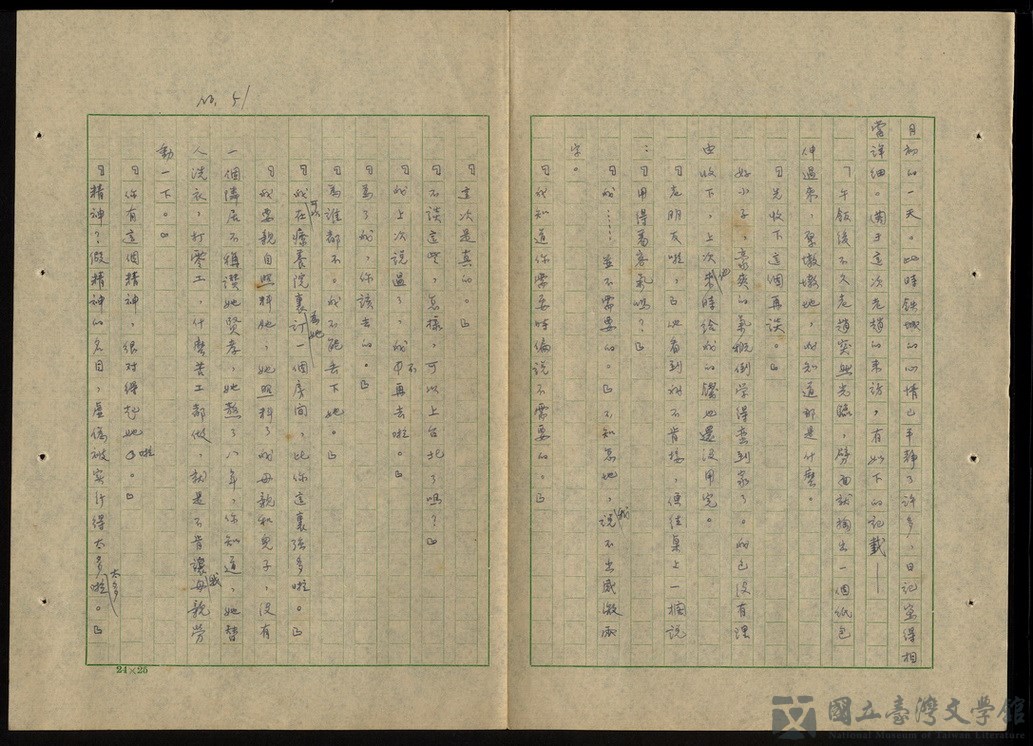 No. 51
月初的一天。此時鉄城的心情已平靜了許多，日記寫得相
當詳細。關于這次老趙的来訪，有如下的記載——
「午飯後不久老趙突然光臨，劈面就掏出一個紙包
伸過来，厚墩墩地，我知道那是什麼。
『先收下這個再談。』
好小子，豪爽的氣概倒学得到家了。我已没有理
由收下，上次他来時給我的錢也還没用完。
『老朋友啦，』他看到我不肯接，便往桌上一擱說
：『用得着客氣嗎？』
『我……並不需要的。』不知怎地，我說不出感激兩
字。
『我知道你需要時偏說不需要的。』
『這次是真的。』
『不談這些，怎樣，可以上台北了嗎？』
『我上次說過了，我不再去啦。』
『為了我，你該去的。』
『為誰都不。我不能丢下她。』
『我可以在療養院裏為她訂一個房间，比你這裏强多啦。』
『我要親自照料她，她照料了我母親和兒子，没有
一個隣居不稱讚她賢孝，她熬了八年，你知道，她替
人洗衣，打零工，什麼苦工都做，就是不肯讓我母親勞
動一下。』
『你有這個精神，很对得起她啦。』
『精神？做精神的名目，虚偽被实行得太多太多啦。』
24×25
國立臺灣文学館
National Museum of Taiwan Literature